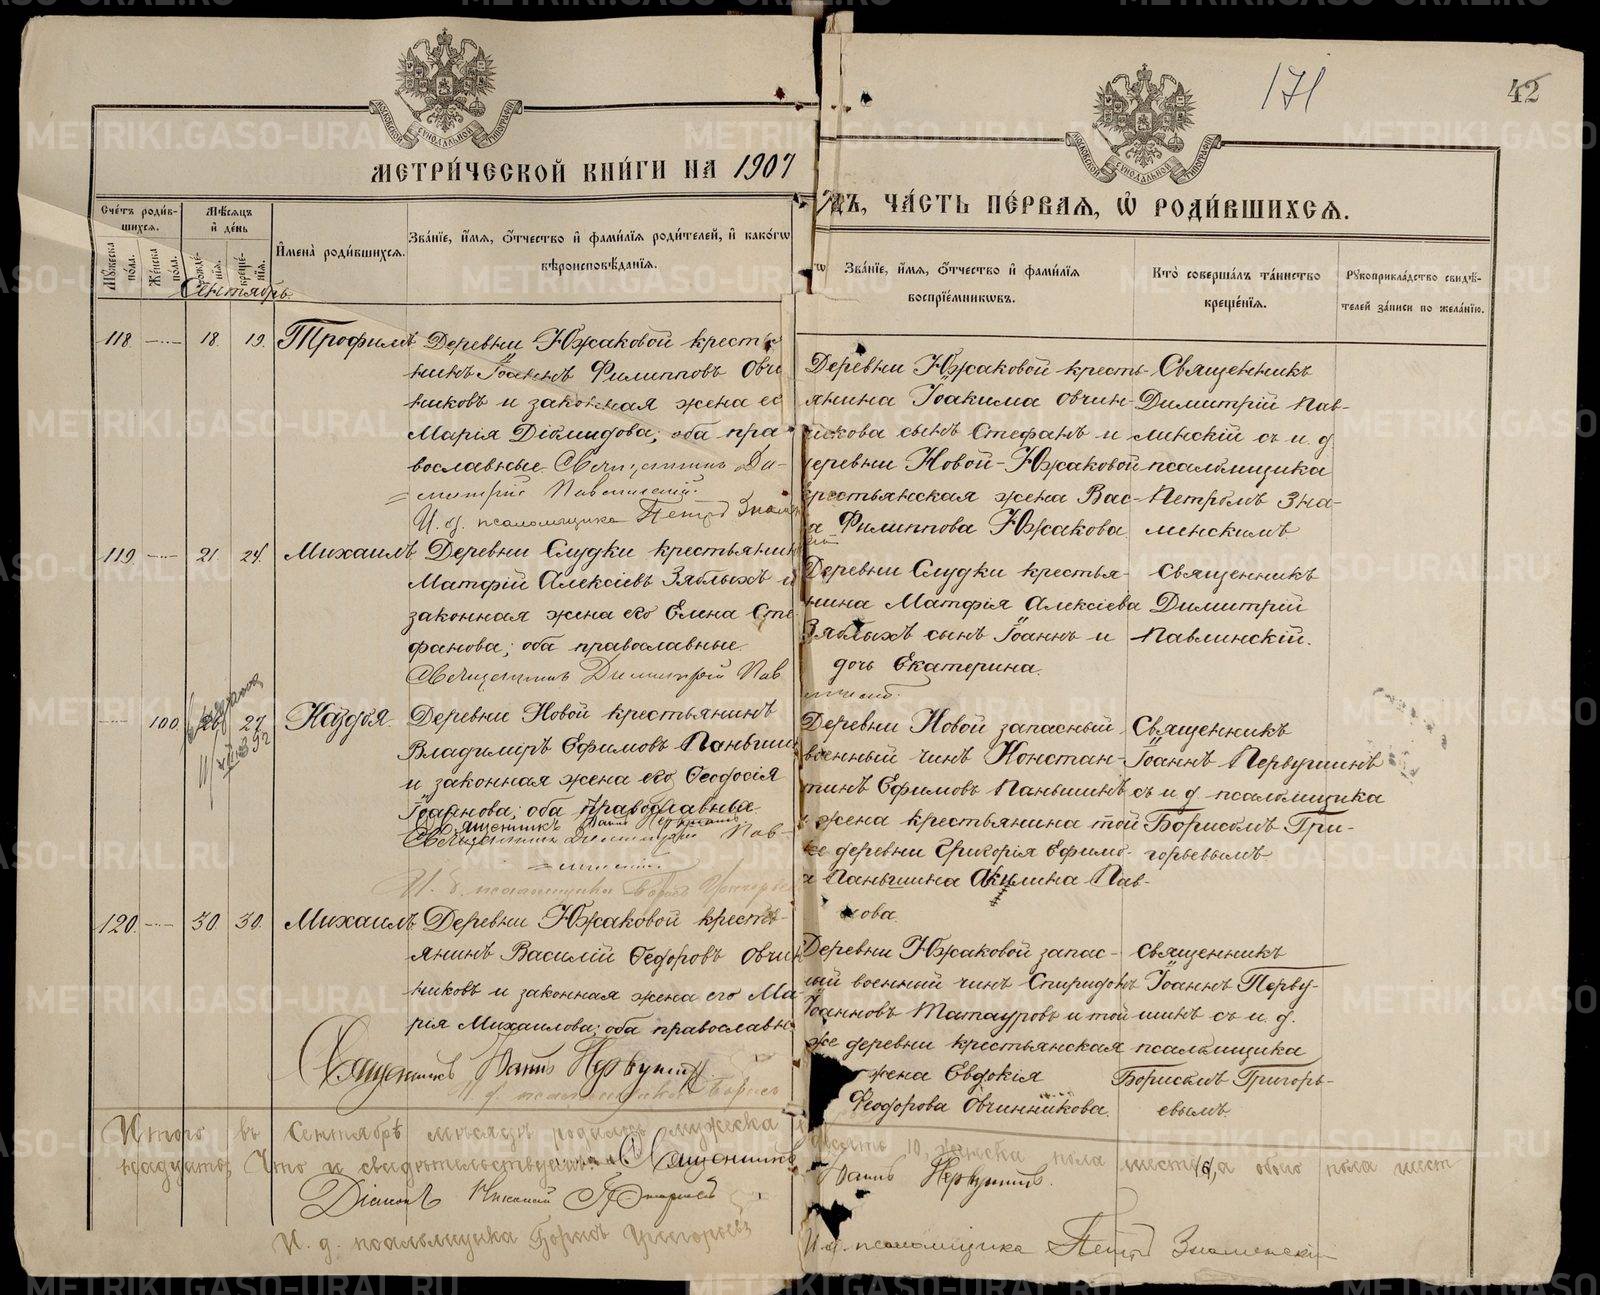 171
42
МОСКОВСКОЙ СѴНОДАЛЬНОЙ ТИПОГРАФІИ
МОСКОВСКОЙ СѴНОДАЛЬНОЙ ТИПОГРАФІИ
МЕТРИ́ЧЕСКОЙ КНИ́ГИ НА 1907
ДЪ, ЧА́СТЬ ПЕ́РВАѦ, Ѡ҆ РОДИ́ВШИХСѦ.
Сче́тъ роди́в-
шихсѧ.
Мѹ́жеска по́ла.
Же́нска по́ла.
Мѣ́сѧцъ
и҆ де́нь
рожде́-
нїѧ.
креще́-
нїѧ.
И҆мена̀ роди́вшихсѧ.
Зва́нїе, и҆́мѧ, ѻ҆́тчество и҆ фами́лїѧ роди́телей, и҆ како́гѡ
вѣроисповѣ́данїѧ.
Зва́нїе, и҆́мѧ, ѻ҆́тчество и҆ фами́лїѧ
воспрїе́мникѡвъ.
Кто̀ соверша́лъ та́инство
креще́нїѧ.
Рѹкоприкла́дство свидѣ́-
телей за́писи по жела́нїю.
Сентябрь
118 — 18. 19. Трофимъ
Деревни Южаковой кресть
нинъ Іоаннъ Филипповъ Овчи
никовъ и законная жена ег
Марія Діомидова; оба пра-
вославные. Священникъ Ди-
митрій Павлинскій.
И. д. псаломщика Петръ Знамен
Деревни Южаковой кресть-
янина Іоакима Овчин-
никова сынъ Стефанъ и
деревни Новой-Южаковой
крестьянская жена Вас-
са Филиппова Южакова
Священникъ
Димитрій Пав-
линскій съ и. д.
псаломщика
Петромъ Зна-
менскимъ
119 — 21. 24. Михаилъ
Деревни Слудки крестьянин
Матфій Алексіевъ Зяблыхъ и
законная жена его Елена Сте
фанова; оба православные
Священникъ Димитрій Пав
Деревни Слудки крестья-
нина Матфія Алексіева
Зяблыхъ сынъ Іоаннъ и
дочь Екатерина.
Священникъ
Димитрій
Павлинскій.
— 100 26 27
Деревни Новой крестьянинъ
Владимиръ Ефимовъ Паньшин
и законная жена его Ѳеодосія
Іоаннова; оба православные.
Священникъ Іоаннъ Первушинъ
Священникъ Димитрій Пав-
линскій.
И. д. псаломщика Борисъ Григорьев
Деревни Новой запасный
военный чинъ Констан-
тинъ Ефимовъ Паньшинъ
и жена крестьянина той
же деревни Григорія Ефимо-
ва Паньшина Акилина Пав-
лова.
Священникъ
Іоаннъ Первушинъ
съ и д псаломщика
Борисомъ Гри-
горьевымъ
120. — 30. 30. Михаилъ
Деревни Южаковой кресть-
янинъ Василій Ѳедоровъ Овчин
никовъ и законная жена его Ма-
рія Михаилова; оба православн
Священникъ Іоаннъ Первушинъ
И. д. псаломщика Борисъ
Деревни Южаковой запас-
ный военный чинъ Спиридонъ
Іоанновъ Татауровъ и той
же деревни крестьянская
жена Евдокія
Ѳеодорова Овчинникова.
Священникъ
Іоаннъ Перву-
шинъ съ и. д.
псаломщика
Борисомъ Григорь-
евымъ.
Итого въ Сентябрѣ мѣсяцѣ родилось мужеска
десять 10, женска пола шесть (6), а обоего пола шест
надцать, что и свидѣтельствуемъ: Священникъ
Іоаннъ Первушинъ.
Діаконъ Николай
И. д. псаломщика Борисъ Григорьевъ
И. д. псаломщика Петръ Знаменскій